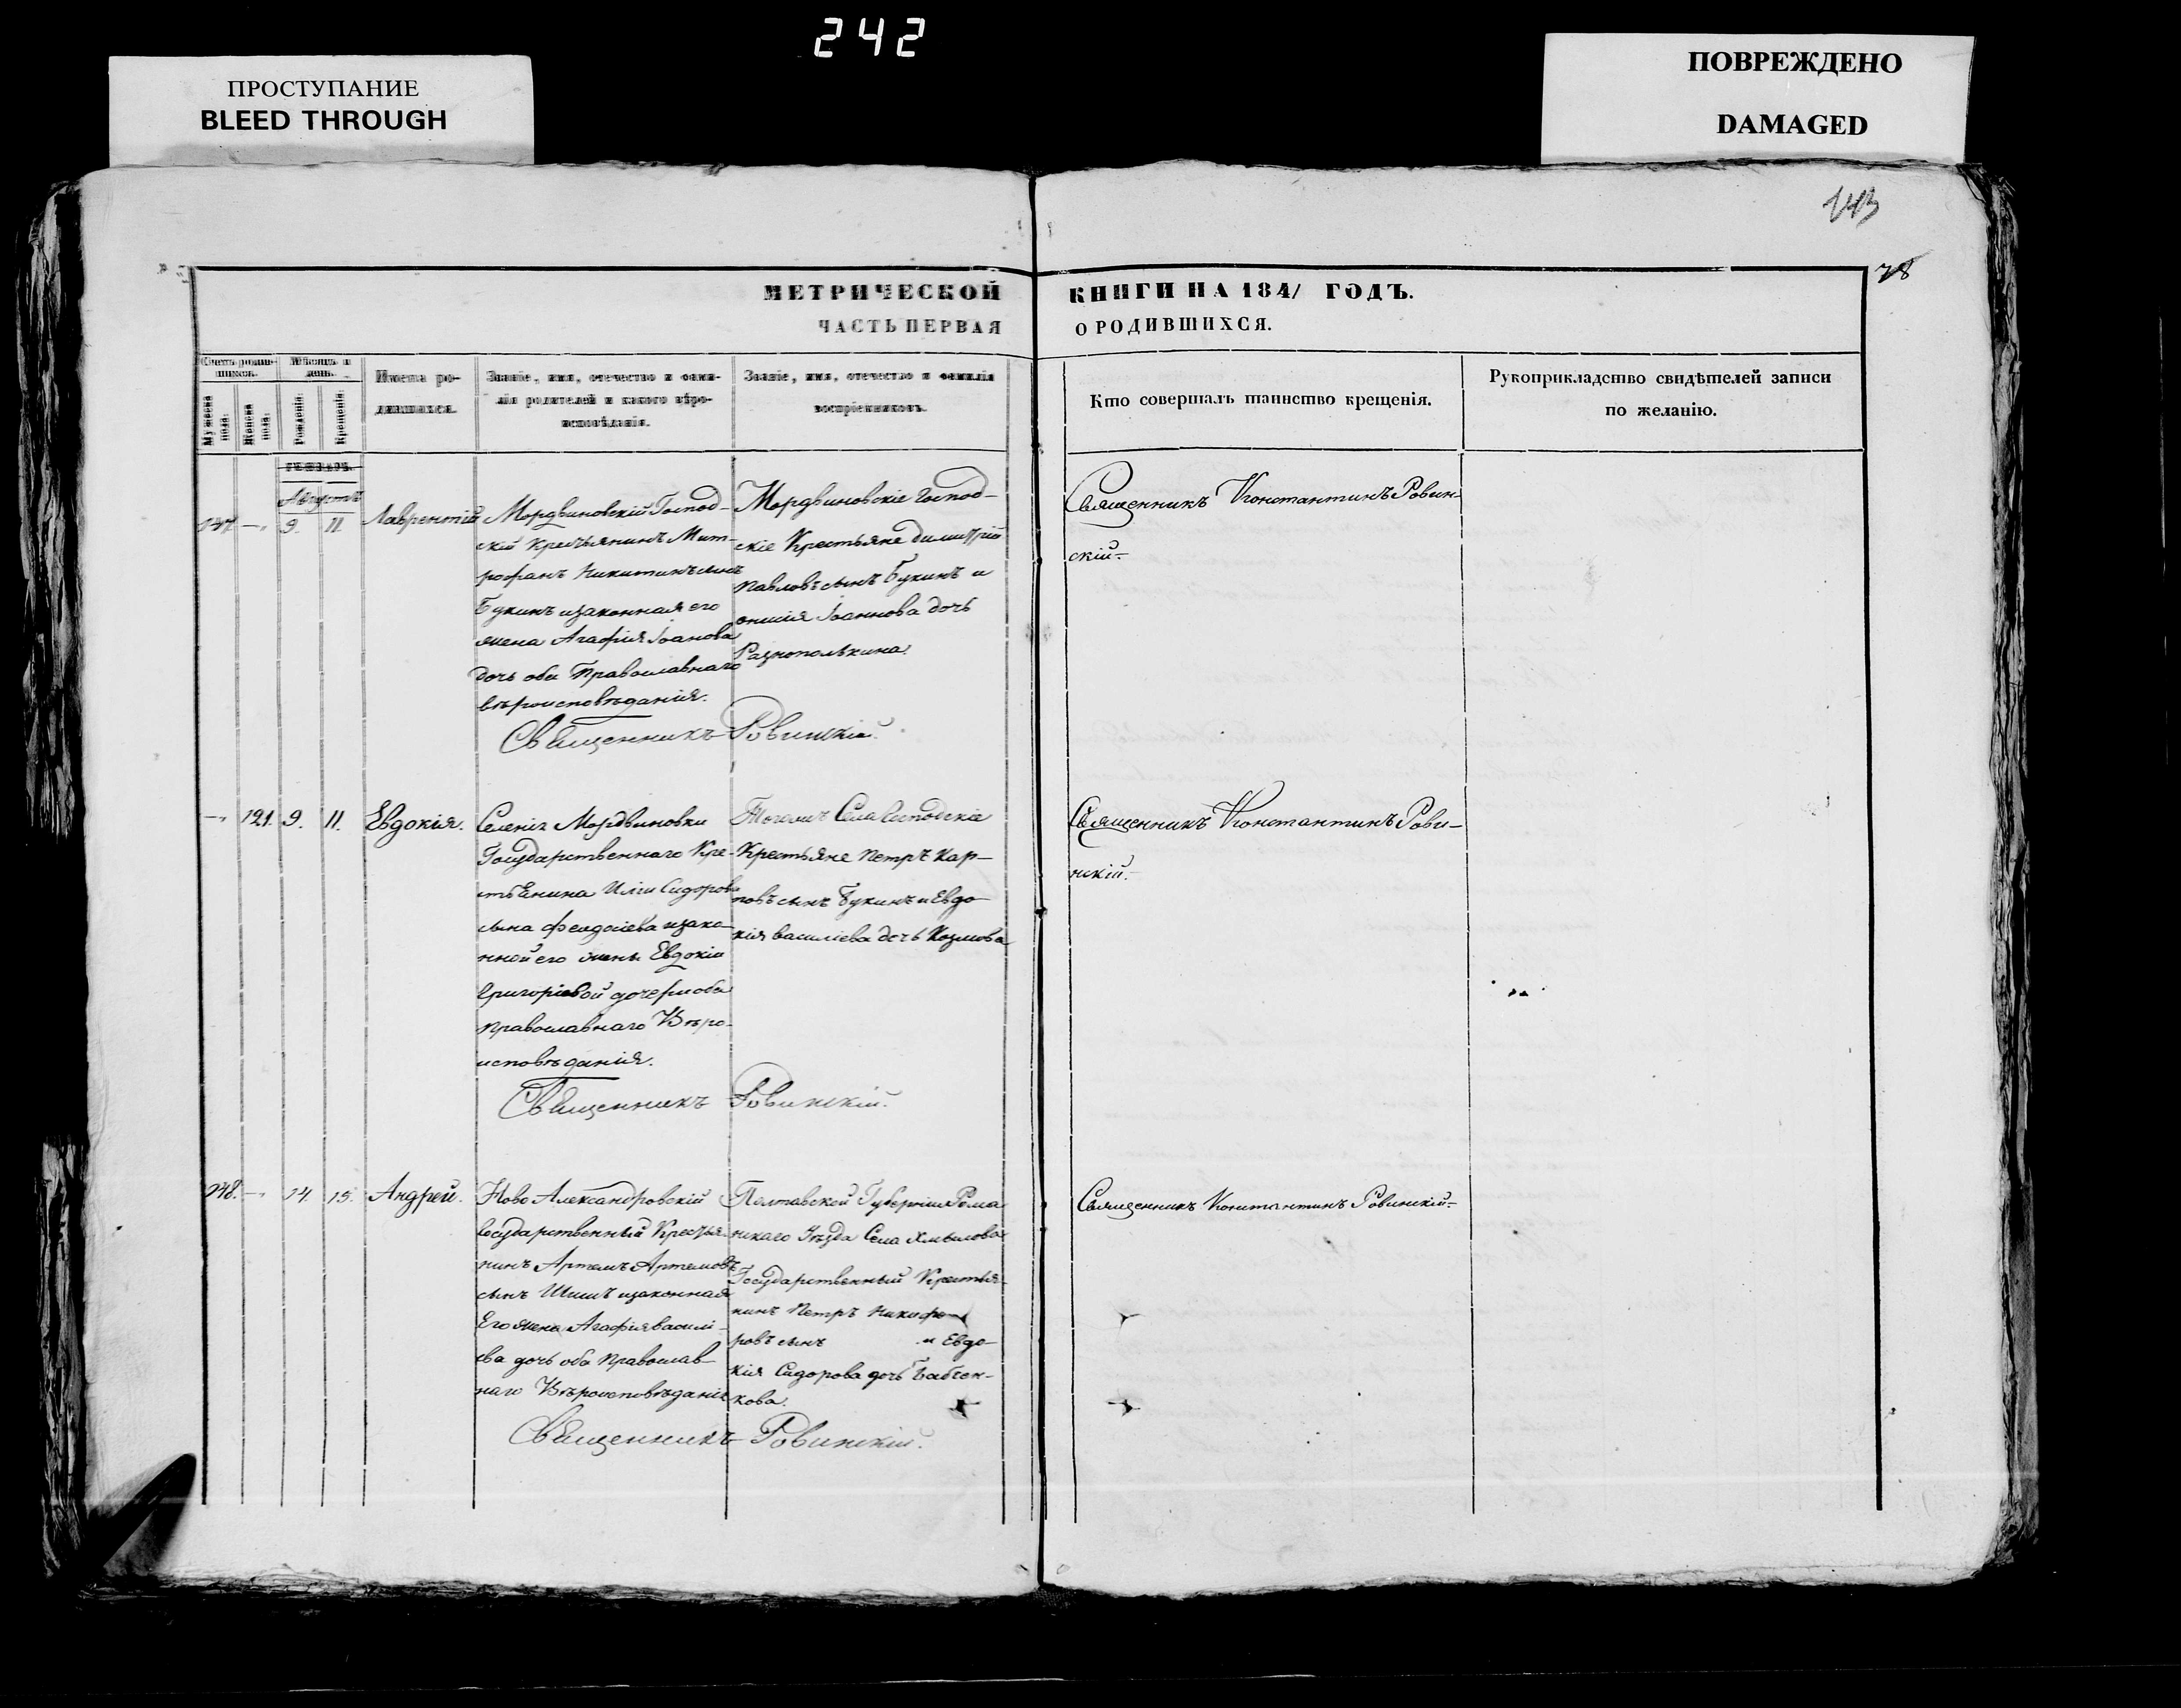 242
ПРОСТУПАНИЕ
BLEED THROUGH
ПОВРЕЖДЕНО
DAMAGED
143
78
МЕТРИЧЕСКОЙ КНИГИ НА 1841 ГОДЪ.
ЧАСТЬ ПЕРВАЯ О РОДИВШИХСЯ.
Счетъ родив-
шихся.
Мужеска
пола.
Женска
пола.
Мѣсяцъ и
день.
Рожденія.
Крещенія.
Имена ро-
дившихся.
Званіе, имя, отечество и фами-
лія родителей и какого вѣро-
исповѣданія.
Званіе, имя, отечество и фамилія
воспріемниковъ.
Кто совершалъ таинство крещенія.
Рукоприкладство свидѣтелей записи
по желанію.
Генварь.
Августъ
147. — 9. 11. Лаврентій
Мордвиновскій Господ-
скій Крестьянинъ Мит-
рофанъ Никитинъ сынъ
Букинъ изаконная его
жена Агафія Іоанова
дочь оба Православнаго
вѣроисповѣданія.
Мордвиновскіе Господ-
скіе Крестьяне Димитрій
Павловъ сынъ Букинъ и
Іоаннова дочь
Священникъ Константинъ Ровин-
скій.
Священникъ Ровинскій.
— 121. 9. 11. Евдокія.
Селенія Мордвиновки
Государственнаго Кре-
стьянина Иліи Сидорова
сына Феодосіева изако-
нной его жены Евдокіи
Григоріевой дочери оба
Православнаго Вѣро-
исповѣданія.
Тогожъ Села Господскіе
Крестьяне Петръ Кар-
повъ сынъ Букинъ и Евдо-
кія Василіева дочь Козмова
Священникъ Константинъ Рови-
нскій.
Священникъ Ровинскій.
148. — 14. 15. Андрей.
Ново Александровскій
Государственный Крестья-
нинъ Артемъ Артемовъ
сынъ Шишъ изаконная
Его жена Агафія Васили-
ева дочь оба Православ-
наго Вѣроисповѣданія
Полтавской Губерніи Рома
нскаго Уѣзда Села Хмѣлова
Государственный Крестья-
нинъ Петръ Никифо-
ровъ сынъ и Евдо-
кія Сидорова дочь Бабчен-
кова.
Священникъ Константинъ Ровинскій.
Священникъ Ровинскій.